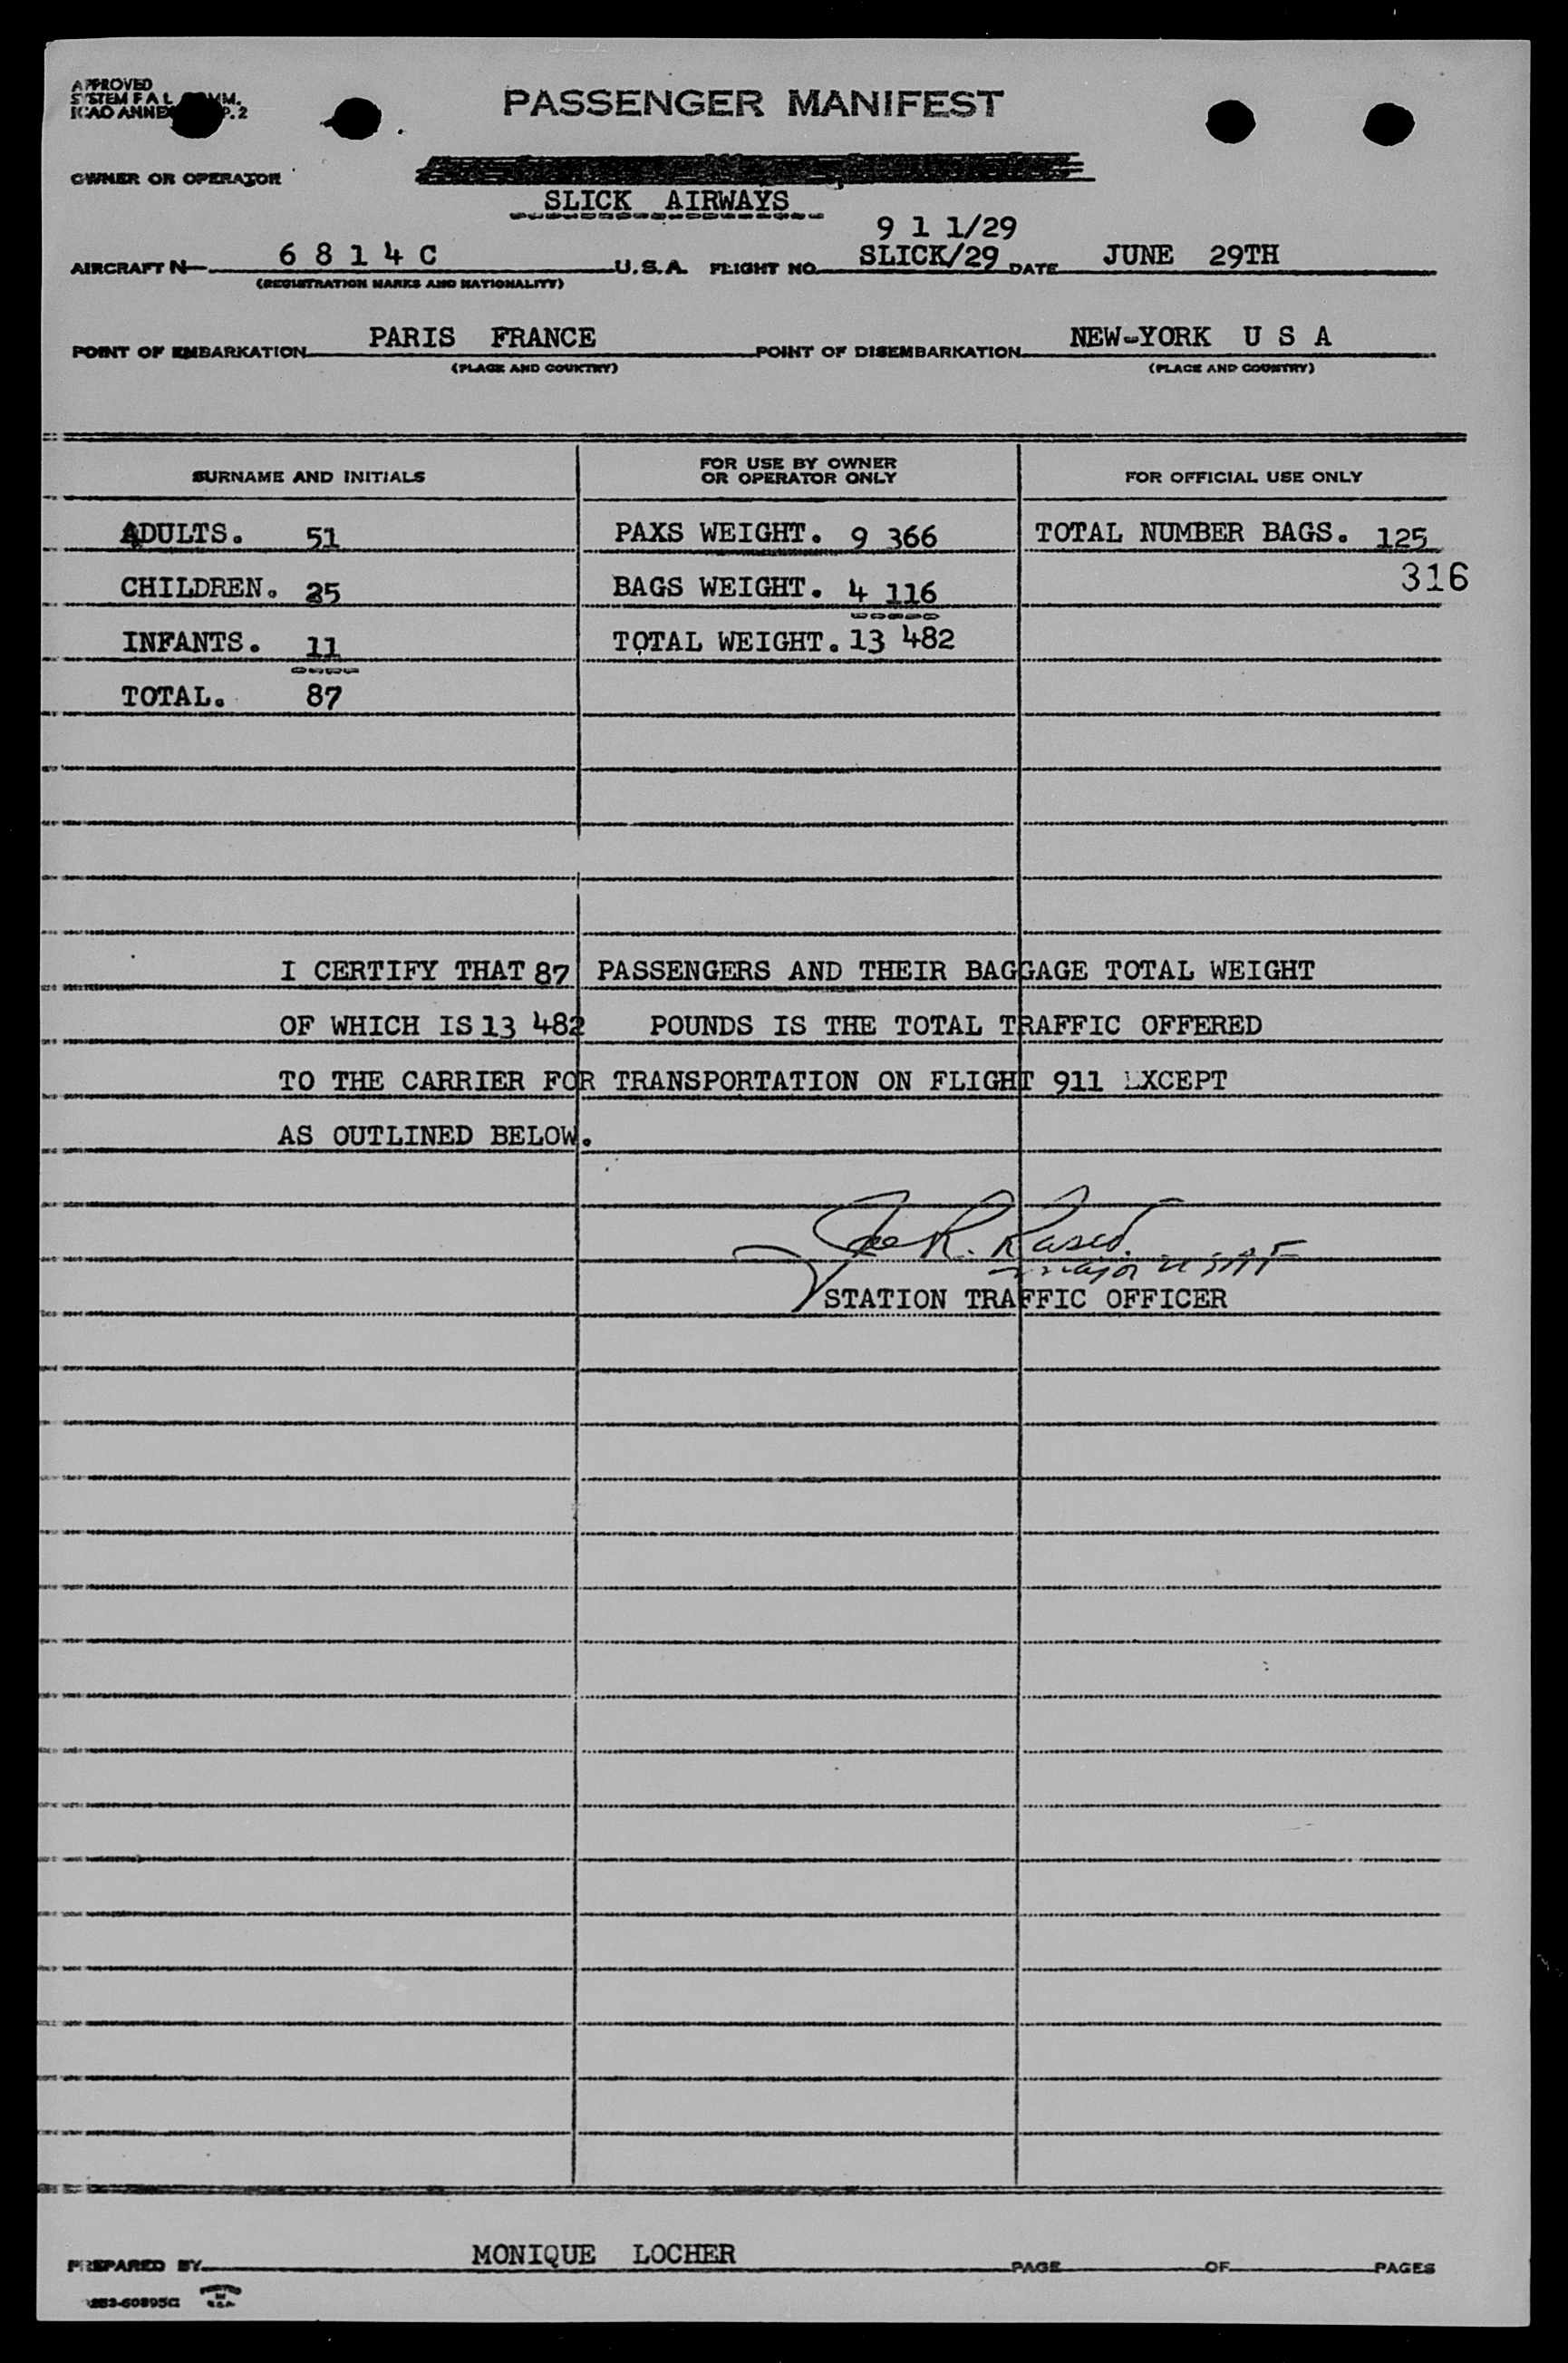 APPROVED
SYSTEM F A L COMM.
ICAO ANNEX P. 2
PASSENGER MANIFEST
OWNER OR OPERATOR
SLICK AIRWAYS
9 1 1/29
AIRCRAFT N 6 8 1 4 C U.S.A. FLIGHT NO. SLICK/29 DATE JUNE 29TH
(REGISTRATION MARKS AND NATIONALITY)
POINT OF EMBARKATION PARIS FRANCE POINT OF DISEMBARKATION NEW-YORK U S A
(PLACE AND COUNTRY) (PLACE AND COUNTRY)
SURNAME AND INITIALS FOR USE BY OWNER OR OPERATOR ONLY FOR OFFICIAL USE ONLY
ADULTS. 51 PAXS WEIGHT. 9 366 TOTAL NUMBER BAGS. 125
316
CHILDREN. 25 BAGS WEIGHT. 4 116
INFANTS. 11 TOTAL WEIGHT. 13 482
TOTAL. 87
I CERTIFY THAT 87 PASSENGERS AND THEIR BAGGAGE TOTAL WEIGHT
OF WHICH IS 13 482 POUNDS IS THE TOTAL TRAFFIC OFFERED
TO THE CARRIER FOR TRANSPORTATION ON FLIGHT 911 EXCEPT
AS OUTLINED BELOW.
R.
major USAF
STATION TRAFFIC OFFICER
PREPARED BY MONIQUE LOCHER PAGE OF PAGES